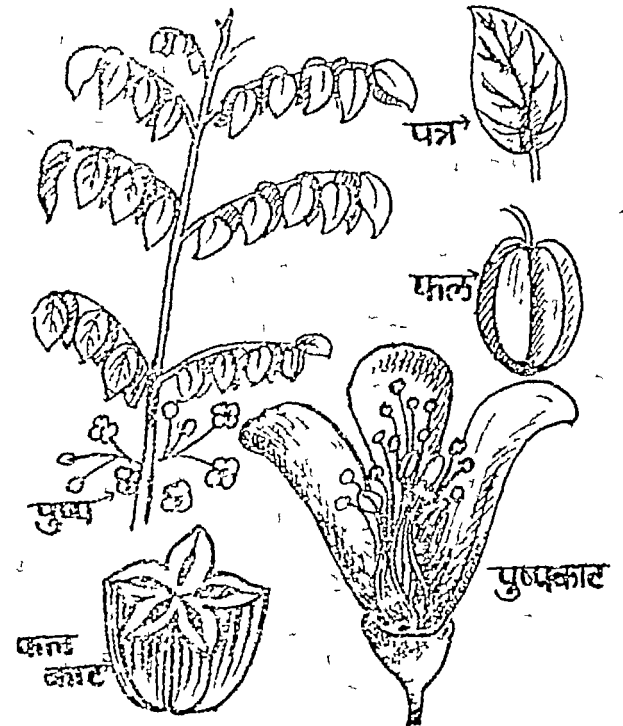 पत्र
फल
पुष्प
पुष्पकाट
फल
काट